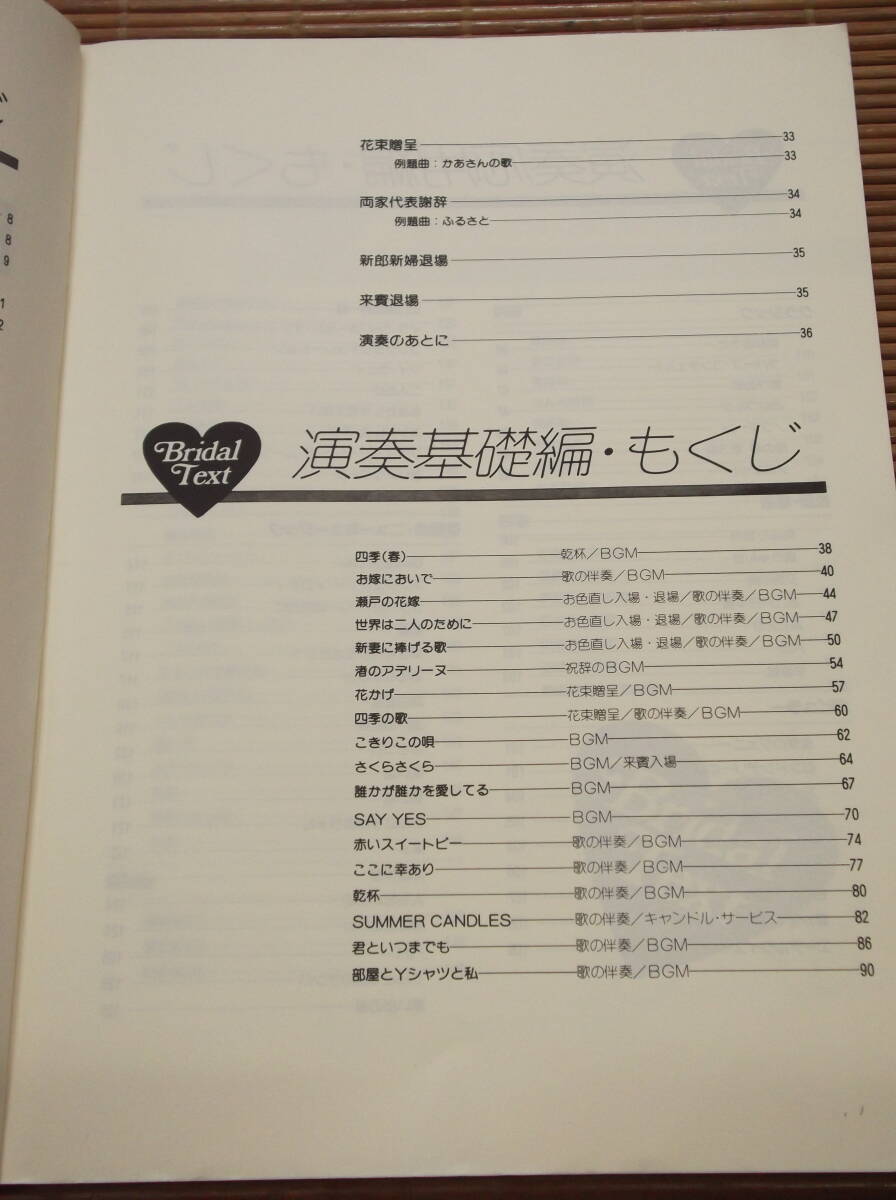 花束贈呈 33
例題曲：かあさんの歌 33
両家代表謝辞 34
例題曲：ふるさと 34
新郎新婦退場 35
来賓退場 35
演奏のあとに 36
Bridal
Text
演奏基礎編・もくじ
四季(春) 乾杯／BGM 38
お嫁においで 歌の伴奏／BGM 40
瀬戸の花嫁 お色直し入場・退場／歌の伴奏／BGM 44
世界は二人のために お色直し入場・退場／歌の伴奏／BGM 47
新妻に捧げる歌 お色直し入場・退場／歌の伴奏／BGM 50
渚のアデリーヌ 祝辞のBGM 54
花かげ 花束贈呈／BGM 57
四季の歌 花束贈呈／歌の伴奏／BGM 60
こきりこの唄 BGM 62
さくらさくら BGM／来賓入場 64
誰かが誰かを愛してる BGM 67
SAY YES BGM 70
赤いスイートピー 歌の伴奏／BGM 74
ここに幸あり 歌の伴奏／BGM 77
乾杯 歌の伴奏／BGM 80
SUMMER CANDLES 歌の伴奏／キャンドル・サービス 82
君といつまでも 歌の伴奏／BGM 86
部屋とYシャツと私 歌の伴奏／BGM 90
8
8
9
1
2